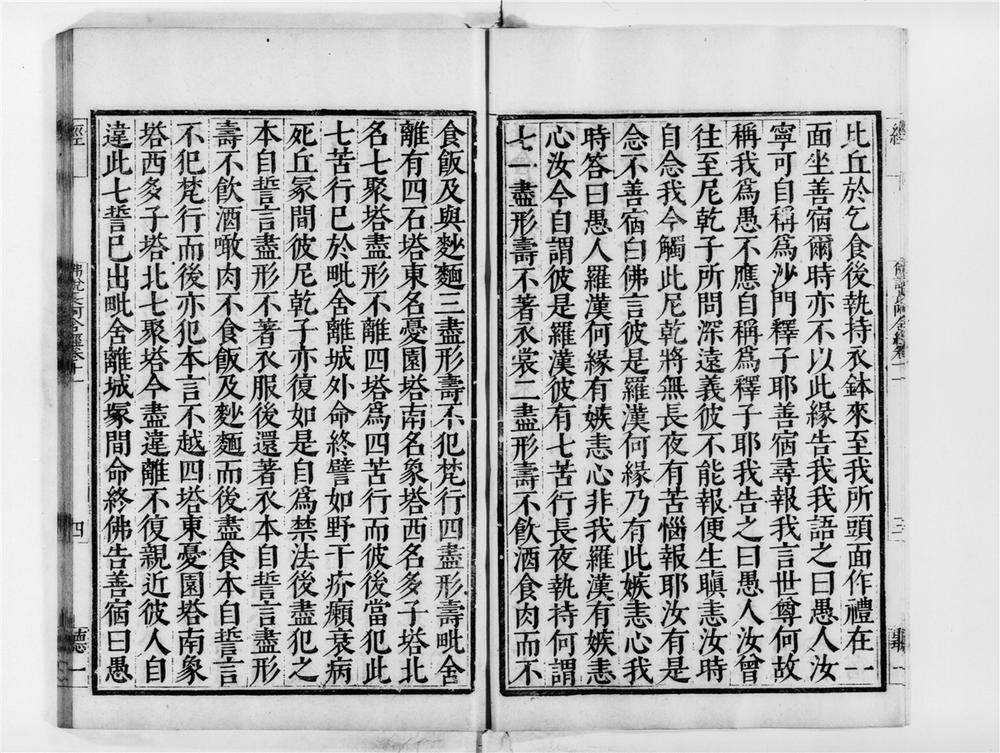 比丘於乞食後執持衣鉢來至我所頭面作禮在一
面坐善宿爾時亦不以此緣告我我語之曰愚人汝
寧可自稱爲沙門釋子耶善宿尋報我言世尊何故
稱我爲愚不應自稱爲釋子耶我告之曰愚人汝曾
往至尼乾子所問深遠義彼不能報便生瞋恚汝時
自念我今觸此尼乾將無長夜有苦惱報耶汝有是
念不善宿白佛言彼是羅漢何緣乃有此嫉恚心我
時答曰愚人羅漢何緣有嫉恚心非我羅漢有嫉恚
心汝今自謂彼是羅漢彼有七苦行長夜執持何謂
七一盡形壽不著衣裳二盡形壽不飲酒食肉而不
食飯及與麨麵三盡形壽不犯梵行四盡形壽毗舍
離有四石塔東名憂園塔南名象塔西名多子塔北
名七聚塔盡形不離四塔爲四苦行而彼後當犯此
七苦行已於毗舍離城外命終譬如野干疥癩衰病
死丘冢間彼尼乾子亦復如是自爲禁法後盡犯之
本自誓言盡形不著衣服後還著衣本自誓言盡形
壽不飲酒噉肉不食飯及麨麵而後盡食本自誓言
不犯梵行而後亦犯本言不越四塔東憂園塔南象
塔西多子塔北七聚塔今盡違離不復親近彼人自
違此七誓已出毗舍離城塚間命終佛告善宿曰愚
經
佛說長阿含經卷十一
四
德一